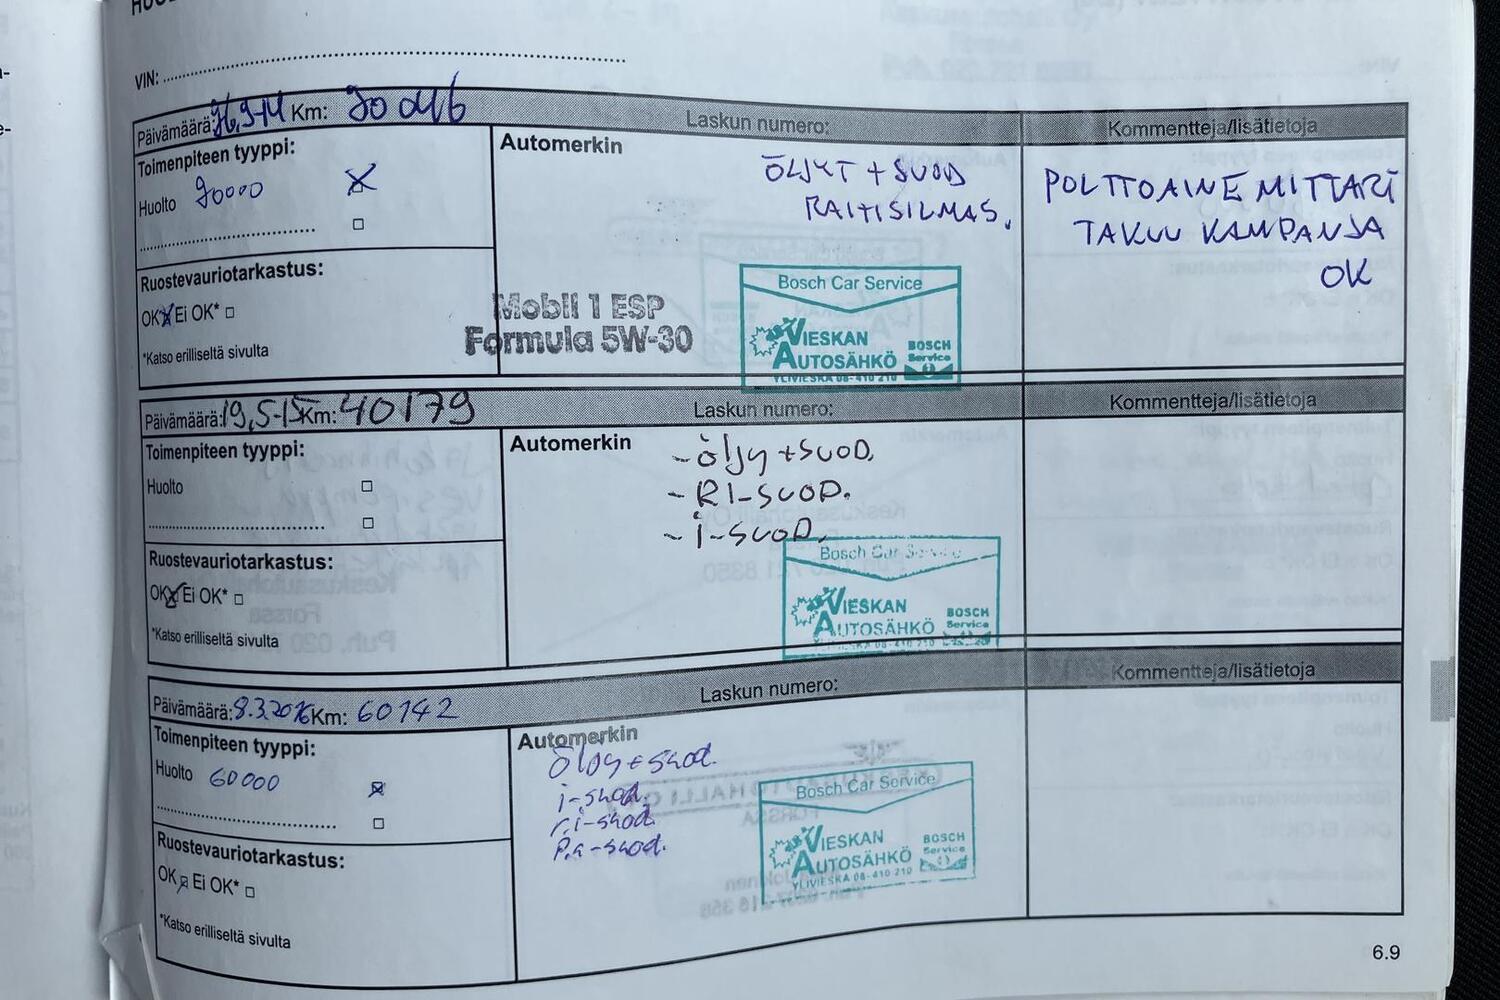 VIN:
Päivämäärä: 26.9-14 Km: 20 046
Laskun numero:
Kommentteja/lisätietoja
Toimenpiteen tyyppi:
Huolto 20000
Automerkin
ÖLJYT + SUOD
RAITISILMAS.
POLTTOAINEMITTARI
TAKUU KAMPANJA
OK
Ruostevauriotarkastus:
OK Ei OK*
*Katso erilliseltä sivulta
Mobil 1 ESP
Formula 5W-30
Bosch Car Service
VIESKAN
AUTOSÄHKÖ
YLIVIESKA 08-410 210
BOSCH
Service
Päivämäärä: 19,5-15 Km: 40179
Laskun numero:
Kommentteja/lisätietoja
Toimenpiteen tyyppi:
Huolto
Automerkin
- öljy + SUOD.
- RI-SUOD.
- i-SUOD.
Ruostevauriotarkastus:
OK Ei OK*
*Katso erilliseltä sivulta
Bosch Car Service
VIESKAN
AUTOSÄHKÖ
YLIVIESKA 08-410 210
BOSCH
Service
Päivämäärä: 8.3.2016 Km: 60142
Laskun numero:
Kommentteja/lisätietoja
Toimenpiteen tyyppi:
Huolto 60000
Automerkin
Öljy + suod.
i-suod.
r.i-suod.
P.a-suod.
Ruostevauriotarkastus:
OK Ei OK*
*Katso erilliseltä sivulta
Bosch Car Service
VIESKAN
AUTOSÄHKÖ
YLIVIESKA 08-410 210
BOSCH
Service
6.9